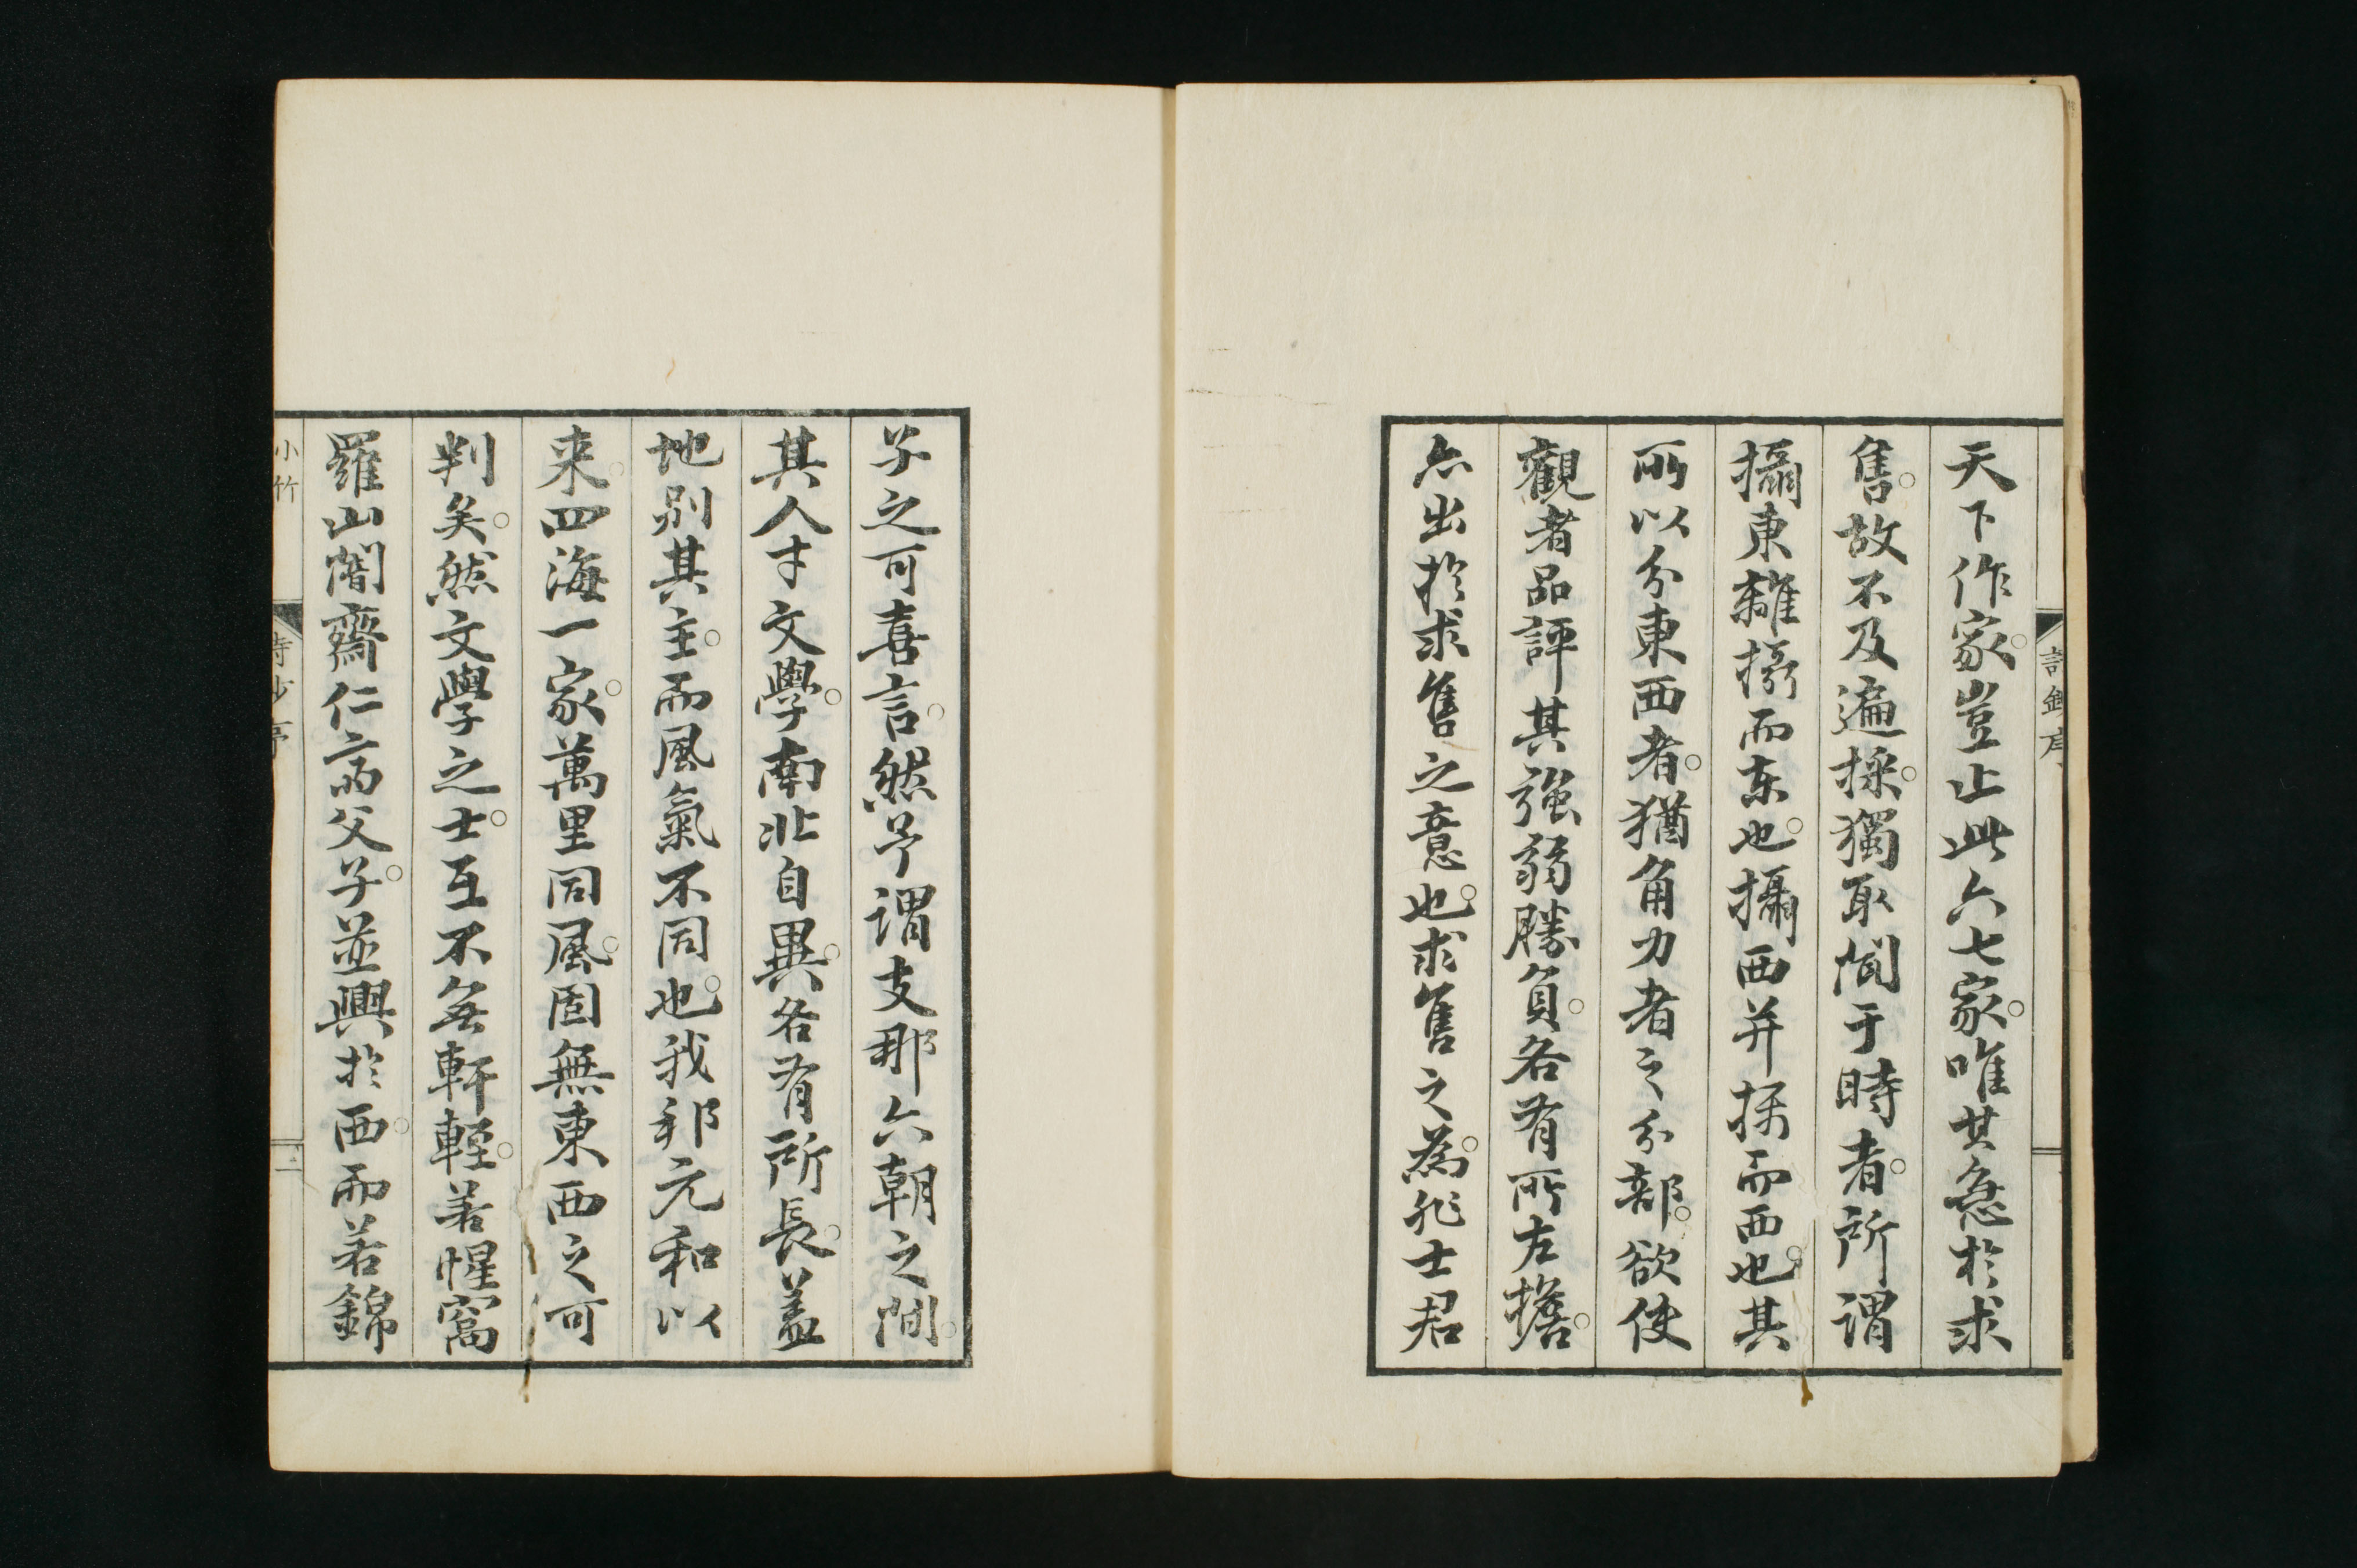 天下作家豈止此六七家唯其急於求
售故不及遍採獨取聞于時者所謂
攝東雜採而东也攝西并採而西也其
所以分東西者猶角力者之分部欲使
觀者品評其強弱勝負各有所左擔
亦出於求售之意也求售之為非士君
子之可喜言然予謂支那六朝之間
其人才文學南北自異各有所長盖
地別其主而風氣不同也我邦元和以
来四海一家萬里同風固無東西之可
判矣然文學之士互不無軒輊若惺窩
羅山闇齋仁斎父子並興於西而若錦
小竹